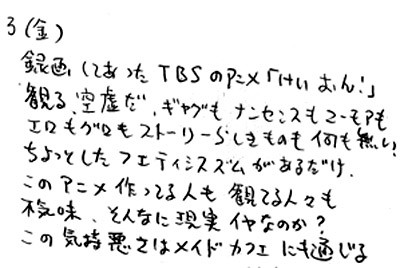 3(金)
録画してあったTBSのアニメ「けいおん!」
観る、空虚だ、ギャグもナンセンスもユーモアも
エロもグロもストーリーらしきものも何も無い!
ちょっとしたフェティシズムがあるだけ.
このアニメ作ってる人も観てる人々も
不気味、そんなに現実イヤなのか?
この気持悪さはメイドカフェにも通じる